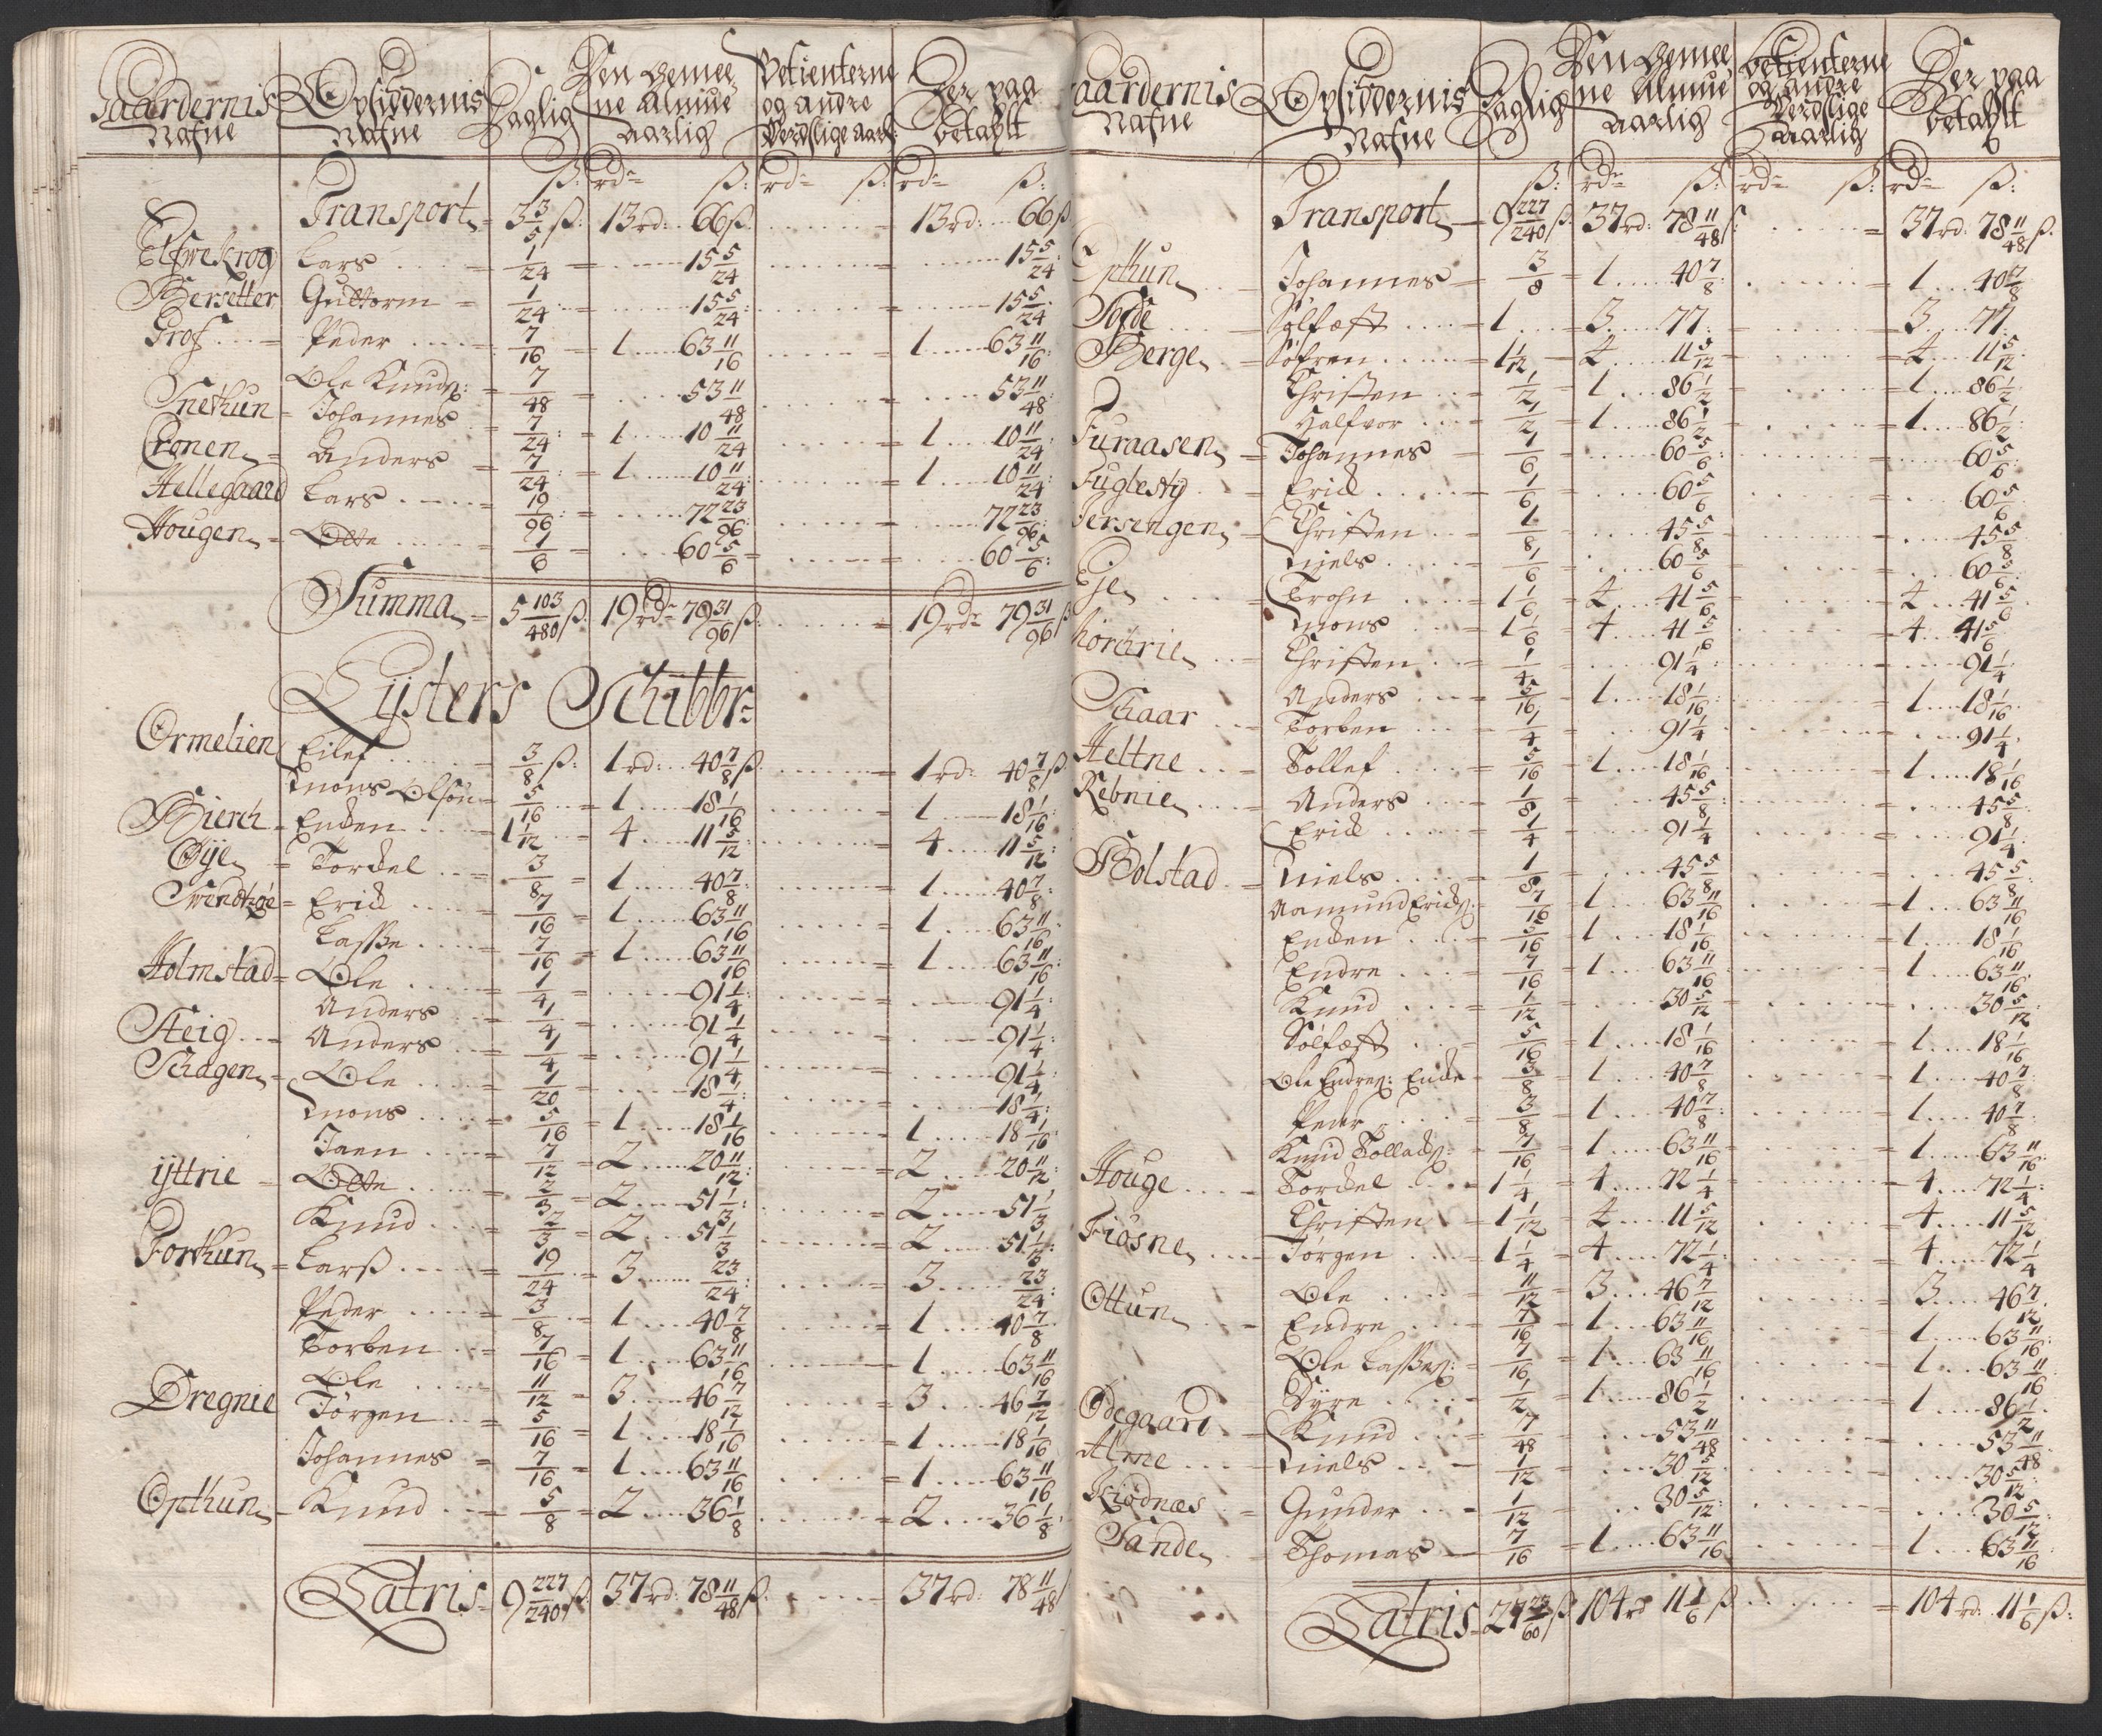 Gaardernis Nafne | Opsiddernis Nafne | Daglig | Den Gemeene Almue aarlig | Betienterne og andre Verdslige aarl: | Der paa betahlt
ß: | rdr ß: | rdr ß: | rdr ß:
Transport 3 3/5 ß: 13 rd: 66 ß. 13 rd: 66 ß
Elfwekrog Lars 1/24 15 5/24 15 5/24
Bersetter Guttorm 1/24 15 5/24 15 5/24
Prof Peder 7/16 1 63 11/16 1 63 11/16
Ole Knuds: 7/48 53 11/48 53 11/48
Snethun Johannes 7/24 1 10 11/24 1 10 11/24
Cronen Anders 7/24 1 10 11/24 1 10 11/24
Hellegaard Lars 19/96 72 23/96 72 23/96
Hougen Otte 1/6 60 5/6 60 5/6
Summa 5 103/480 ß. 19 rdr 79 31/96 ß 19 rdr 79 31/96 ß
Lysters Schibbr:
Ormelien Eilef 3/8 ß. 1 rd: 40 7/8 ß. 1 rd: 40 7/8 ß
Mons Olson 5/16 1 18 1/16 1 18 1/16
Bierch Enden 1 1/12 4 11 5/12 4 11 5/12
Øye Torckel 3/8 1 40 7/8 1 40 7/8
Swendhøe Erick 7/16 1 63 11/16 1 63 11/16
Lasse 7/16 1 63 11/16 1 63 11/16
Holmstad Ole 1/4 91 1/4 91 1/4
Anders 1/4 91 1/4 91 1/4
Steig Anders 1/4 91 1/4 91 1/4
Schagen Ole 1/20 18 1/4 18 1/4
Mons 5/16 1 18 1/16 1 18 1/16
Jaen 7/12 2 20 11/12 2 20 11/12
ÿttrie Otte 2/3 2 51 1/3 2 51 1/3
Knud 2/3 2 51 1/3 2 51 1/3
Forthun Larß 19/24 3 23/24 3 23/24
Peder 3/8 1 40 7/8 1 40 7/8
Torben 7/16 1 63 11/16 1 63 11/16
Ole 11/12 3 46 7/12 3 46 7/12
Dregnie Jørgen 5/16 1 18 1/16 1 18 1/16
Johannes 7/16 1 63 11/16 1 63 11/16
Opthun Knud 5/8 2 36 1/8 2 36 1/8
Latris 9 227/240 ß. 37 rd: 78 11/48 ß. 37 rd: 78 11/48
Gaardernis Nafne | Opsiddernis Nafne | Daglig | Den Gemeene Almue aarlig | Betienterne og andre Verdslige aarlig | Der paa betahlt
ß: | rdr ß: | rdr ß: | rdr ß:
Transport 9 227/240 ß. 37 rd: 78 11/48 ß. 37 rd: 78 11/48 ß.
Opthun Johannes 3/8 1 40 7/8 1 40 7/8
Solfæst 1 3 77 3 77
Berge Søfren 1 1/12 4 11 5/12 4 11 5/12
Christen 1/2 1 86 1/2 1 86 1/2
Halfvor 1/2 1 86 1/2 1 86 1/2
Furaasen Johannes 1/6 60 5/6 60 5/6
Fuglestig Erick 1/6 60 5/6 60 5/6
Jersengen Christen 1/8 45 5/8 45 5/8
Niels 1/6 60 5/6 60 5/6
Eje Trohn 1 1/6 4 41 5/6 4 41 5/6
Mons 1 1/6 4 41 5/6 4 41 5/6
Christen 1/4 91 1/4 91 1/4
Anders 5/16 1 18 1/16 1 18 1/16
Schaar Torben 1/4 91 1/4 91 1/4
Heltne Tollef 5/16 1 18 1/16 1 18 1/16
Rebnie Anders 1/8 45 5/8 45 5/8
Erick 1/4 91 1/4 91 1/4
Bolstad Niels 1/8 45 5/8 45 5/8
Aamund Ericks: 7/16 1 63 11/16 1 63 11/16
Enden 5/16 1 18 1/16 1 18 1/16
Endre 7/16 1 63 11/16 1 63 11/16
Knud 1/12 30 5/12 30 5/12
Solfæst 5/16 1 18 1/16 1 18 1/16
Ole Endres: Encke 3/8 1 40 7/8 1 40 7/8
Peder 3/8 1 40 7/8 1 40 7/8
Knud Tollacks: 7/16 1 63 11/16 1 63 11/16
Houge Torckel 1 1/4 4 72 1/4 4 72 1/4
Christen 1 1/12 4 11 5/12 4 11 5/12
Fiøsne Jørgen 1 1/4 4 72 1/4 4 72 1/4
Ole 11/12 3 46 7/12 3 46 7/12
Ottun Endre 7/16 1 63 11/16 1 63 11/16
Ole Lasses: 7/16 1 63 11/16 1 63 11/16
Syre 1/2 1 86 1/2 1 86 1/2
Ødegaard Knud 7/48 53 11/48 53 11/48
Alme Niels 1/12 30 5/12 30 5/12
Kiødnæs Gunder 1/12 30 5/12 30 5/12
Sande Thomas 7/16 1 63 11/16 1 63 11/16
Latris 27 23/60 ß 104 rd 11 1/6 ß 104 rd: 11 1/6 ß: